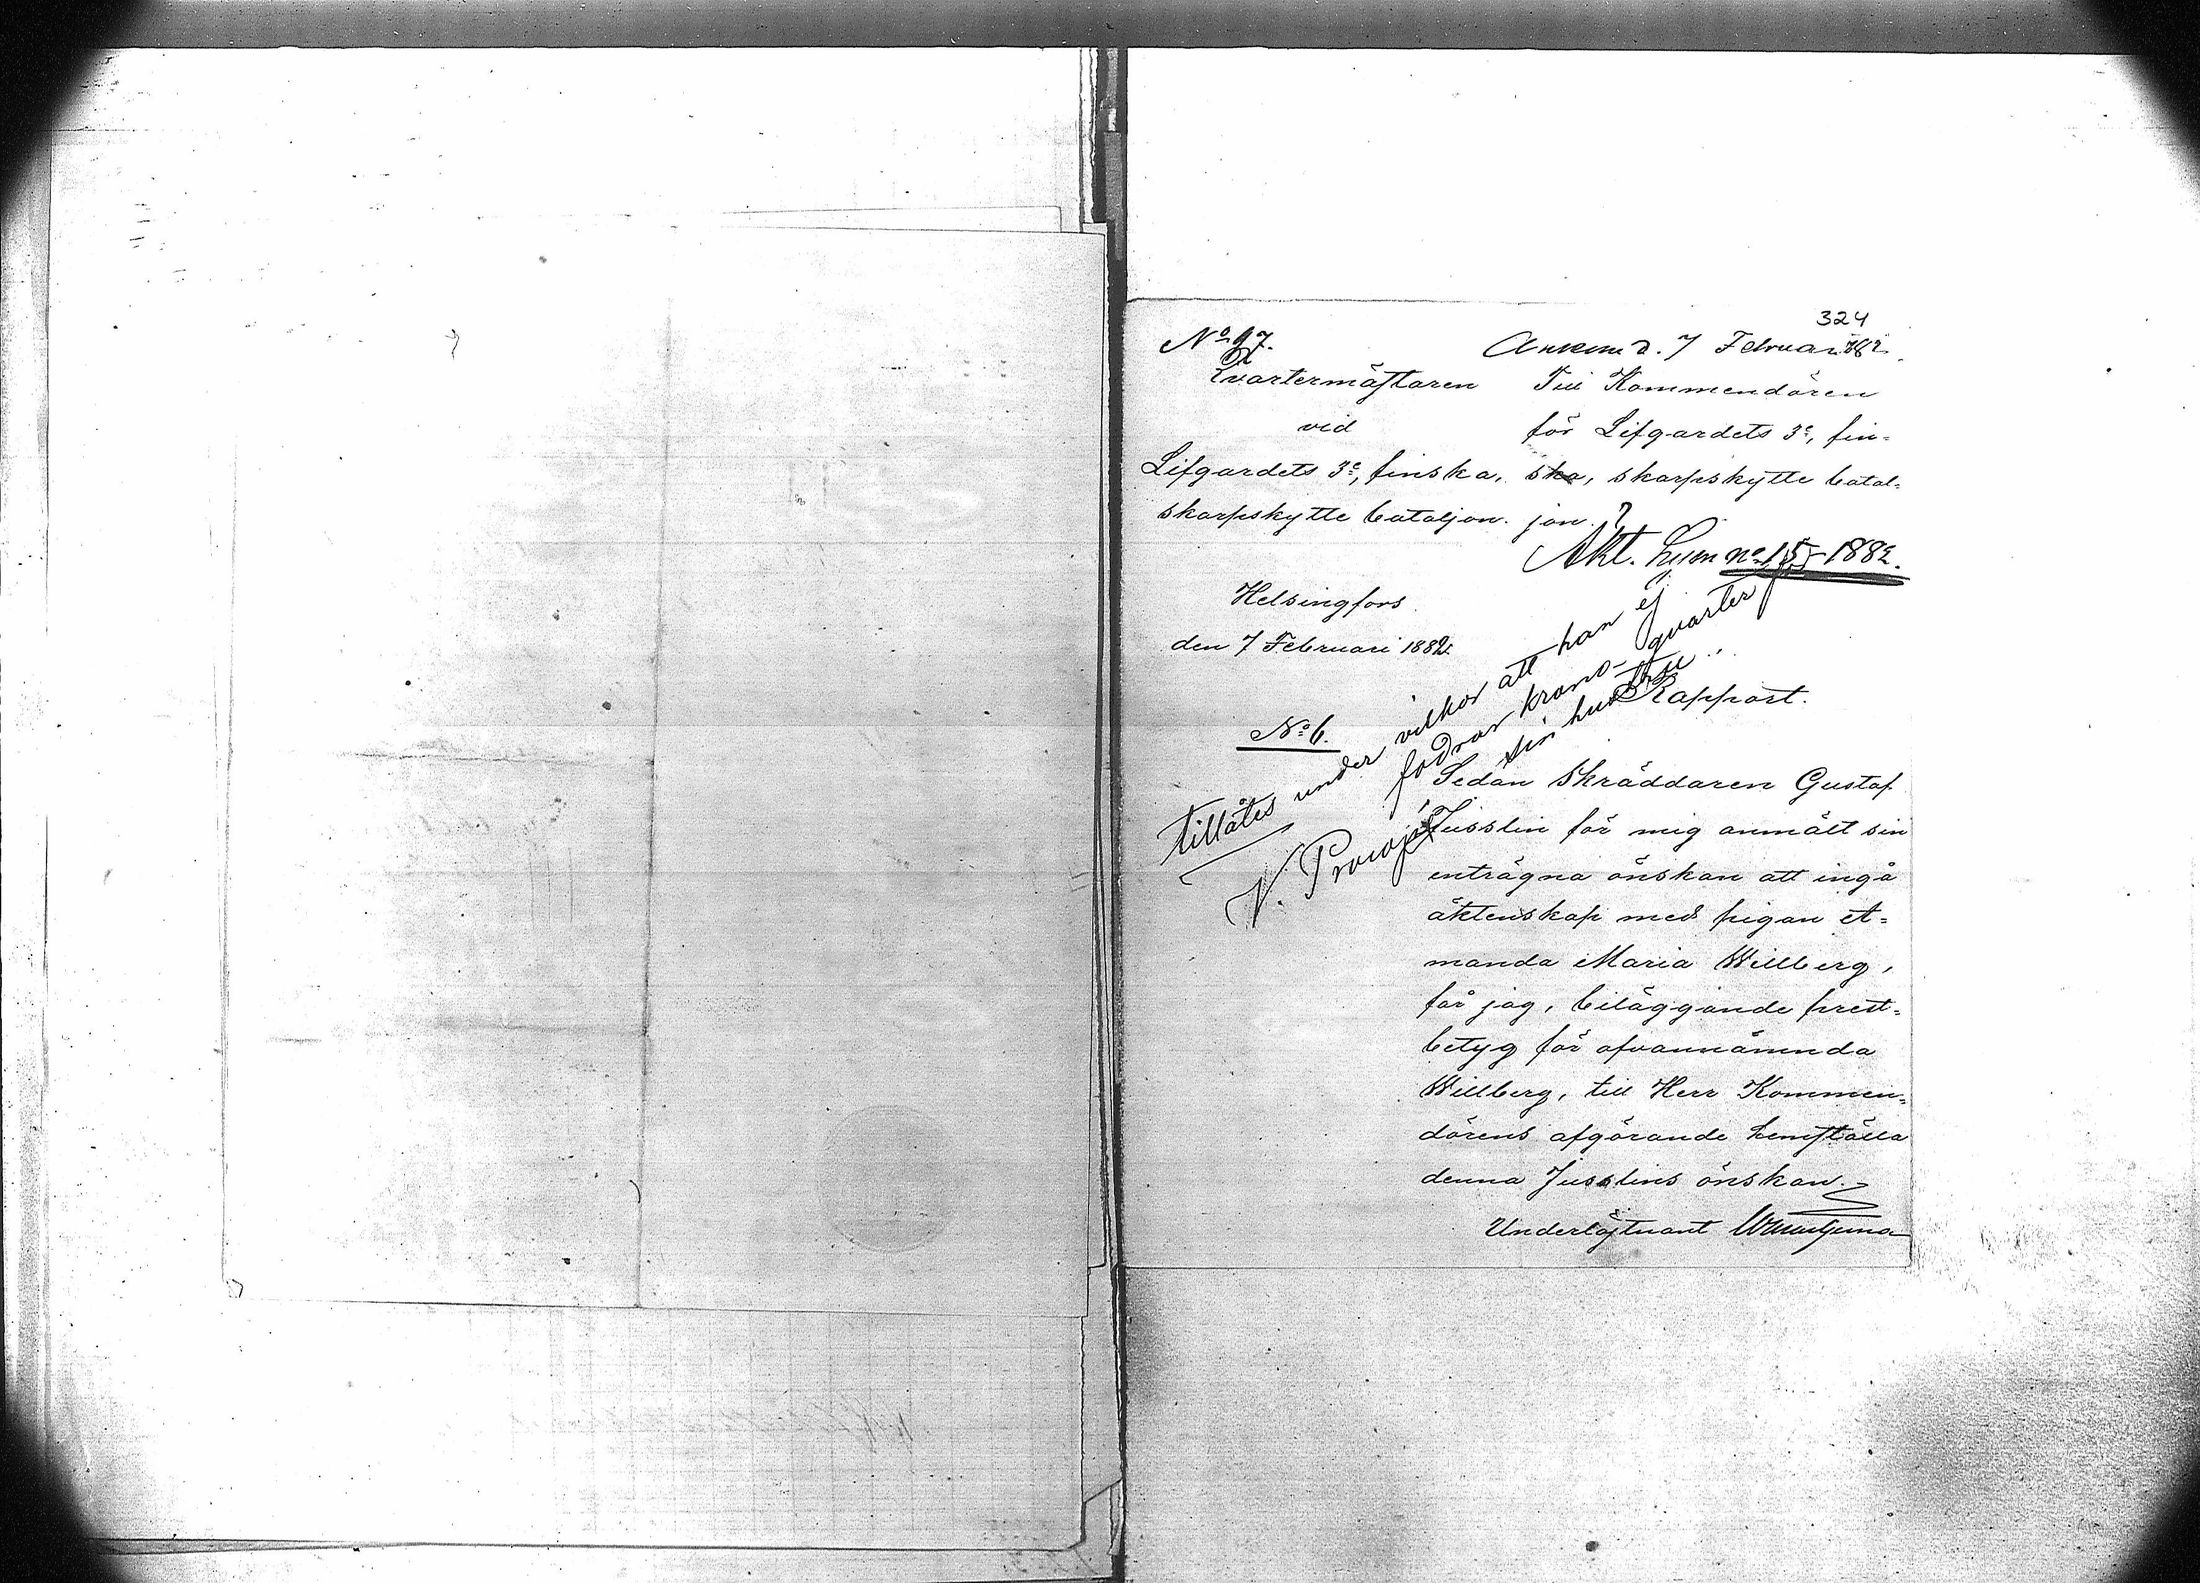 324
No 97.
Ankom d. 7 Februari 1882.
Qvartermästaren
vid
Lifgardets 3e, finska,
skarpskytte bataljon.
Till Kommendören
för Lifgardets 3e, fin=
ska, skarpskytte batal=
jon.
Akt. hum no 15 1882.
Helsingfors
den 7 Februari 1882.
No 6.
tillåtes under vilkor att han ej
fodrar krono-qvarter för
sin hustru.
V. Procopé
Rapport.
Sedan Skräddaren Gustaf
Jusslin för mig anmält sin
enträgna önskan att ingå
äktenskap med pigan A=
manda Maria Willberg,
får jag, biläggande prest=
betyg för ofvannämnda
Willberg, till Herr Kommen=
dörens afgörande hemställa
denna Jusslins önskan.
Underlöjtnant